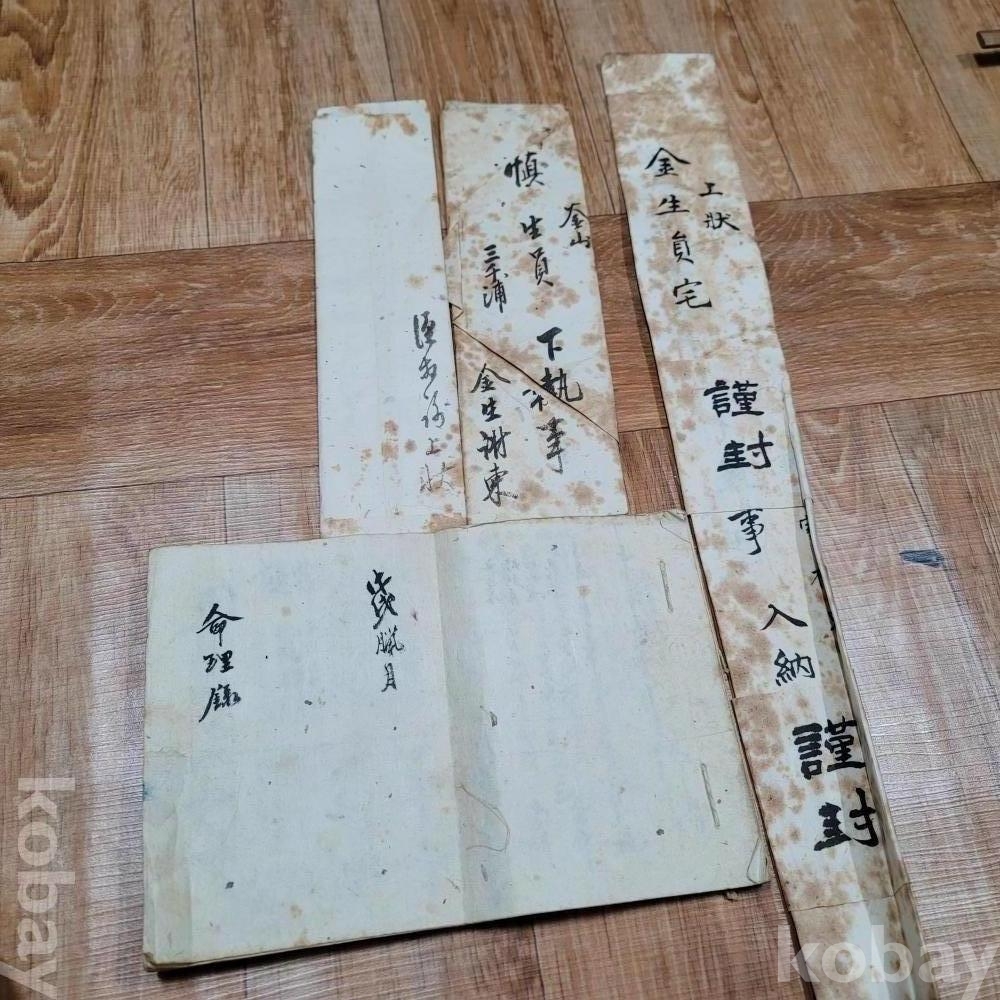 上狀
金生員宅
謹封
事
入納
謹封
慎生員 下執事
三千浦
金生謝柬
上狀
歲臘月
命理錄
kobay
kobay